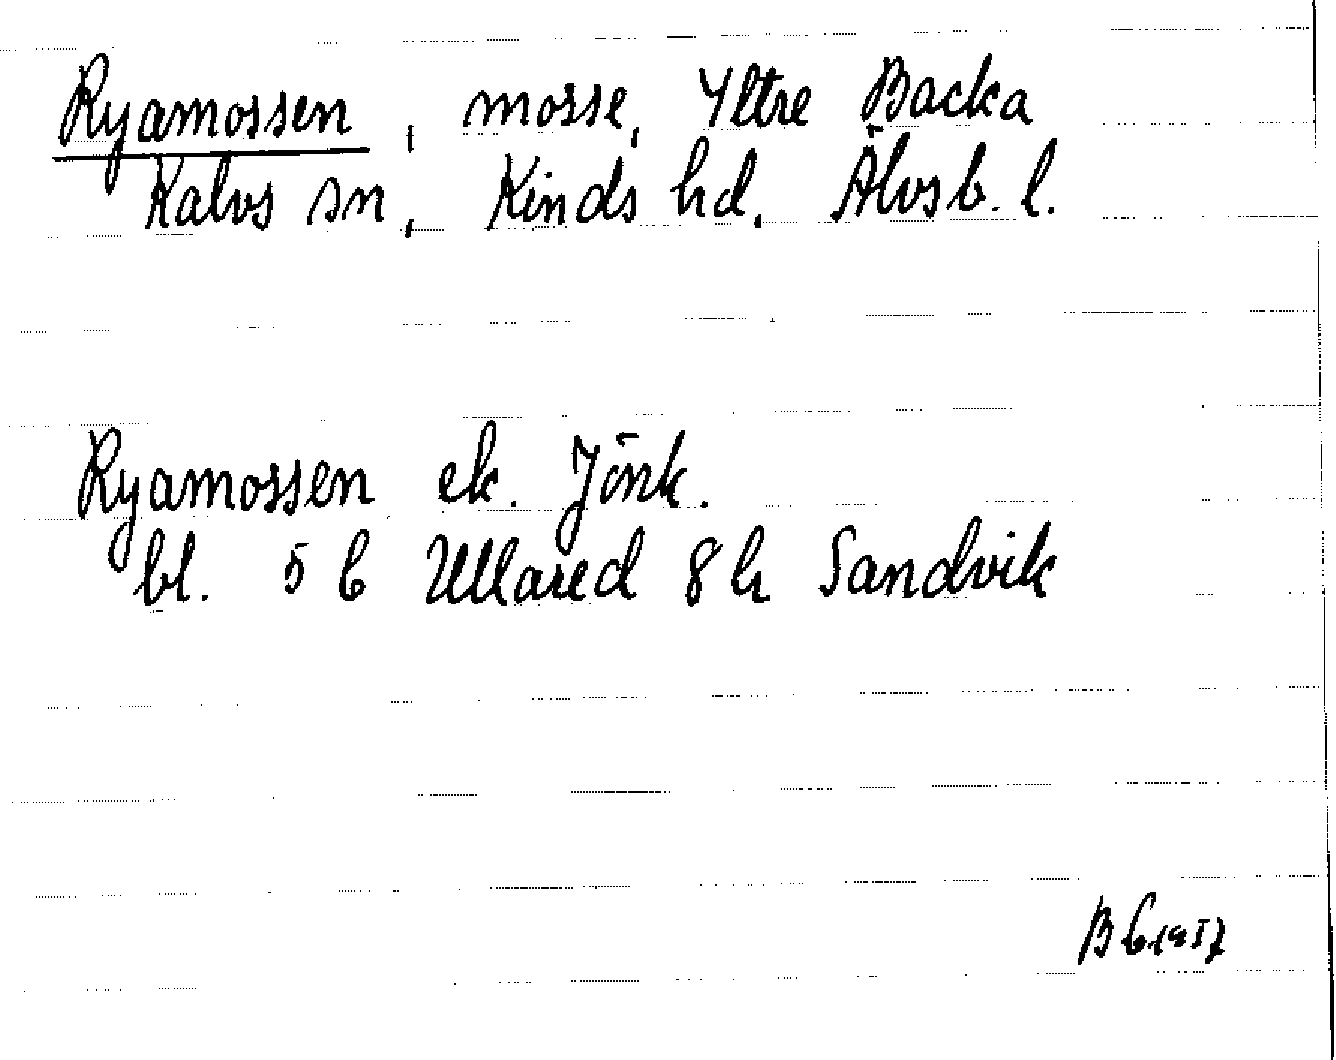 Ryamossen, mosse, Yttre Backa
Kalvs sn, Kinds hd, Älvsb. l.
Ryamossen ek. Jönk.
bl. 5 b Ullared 8 h Sandvik